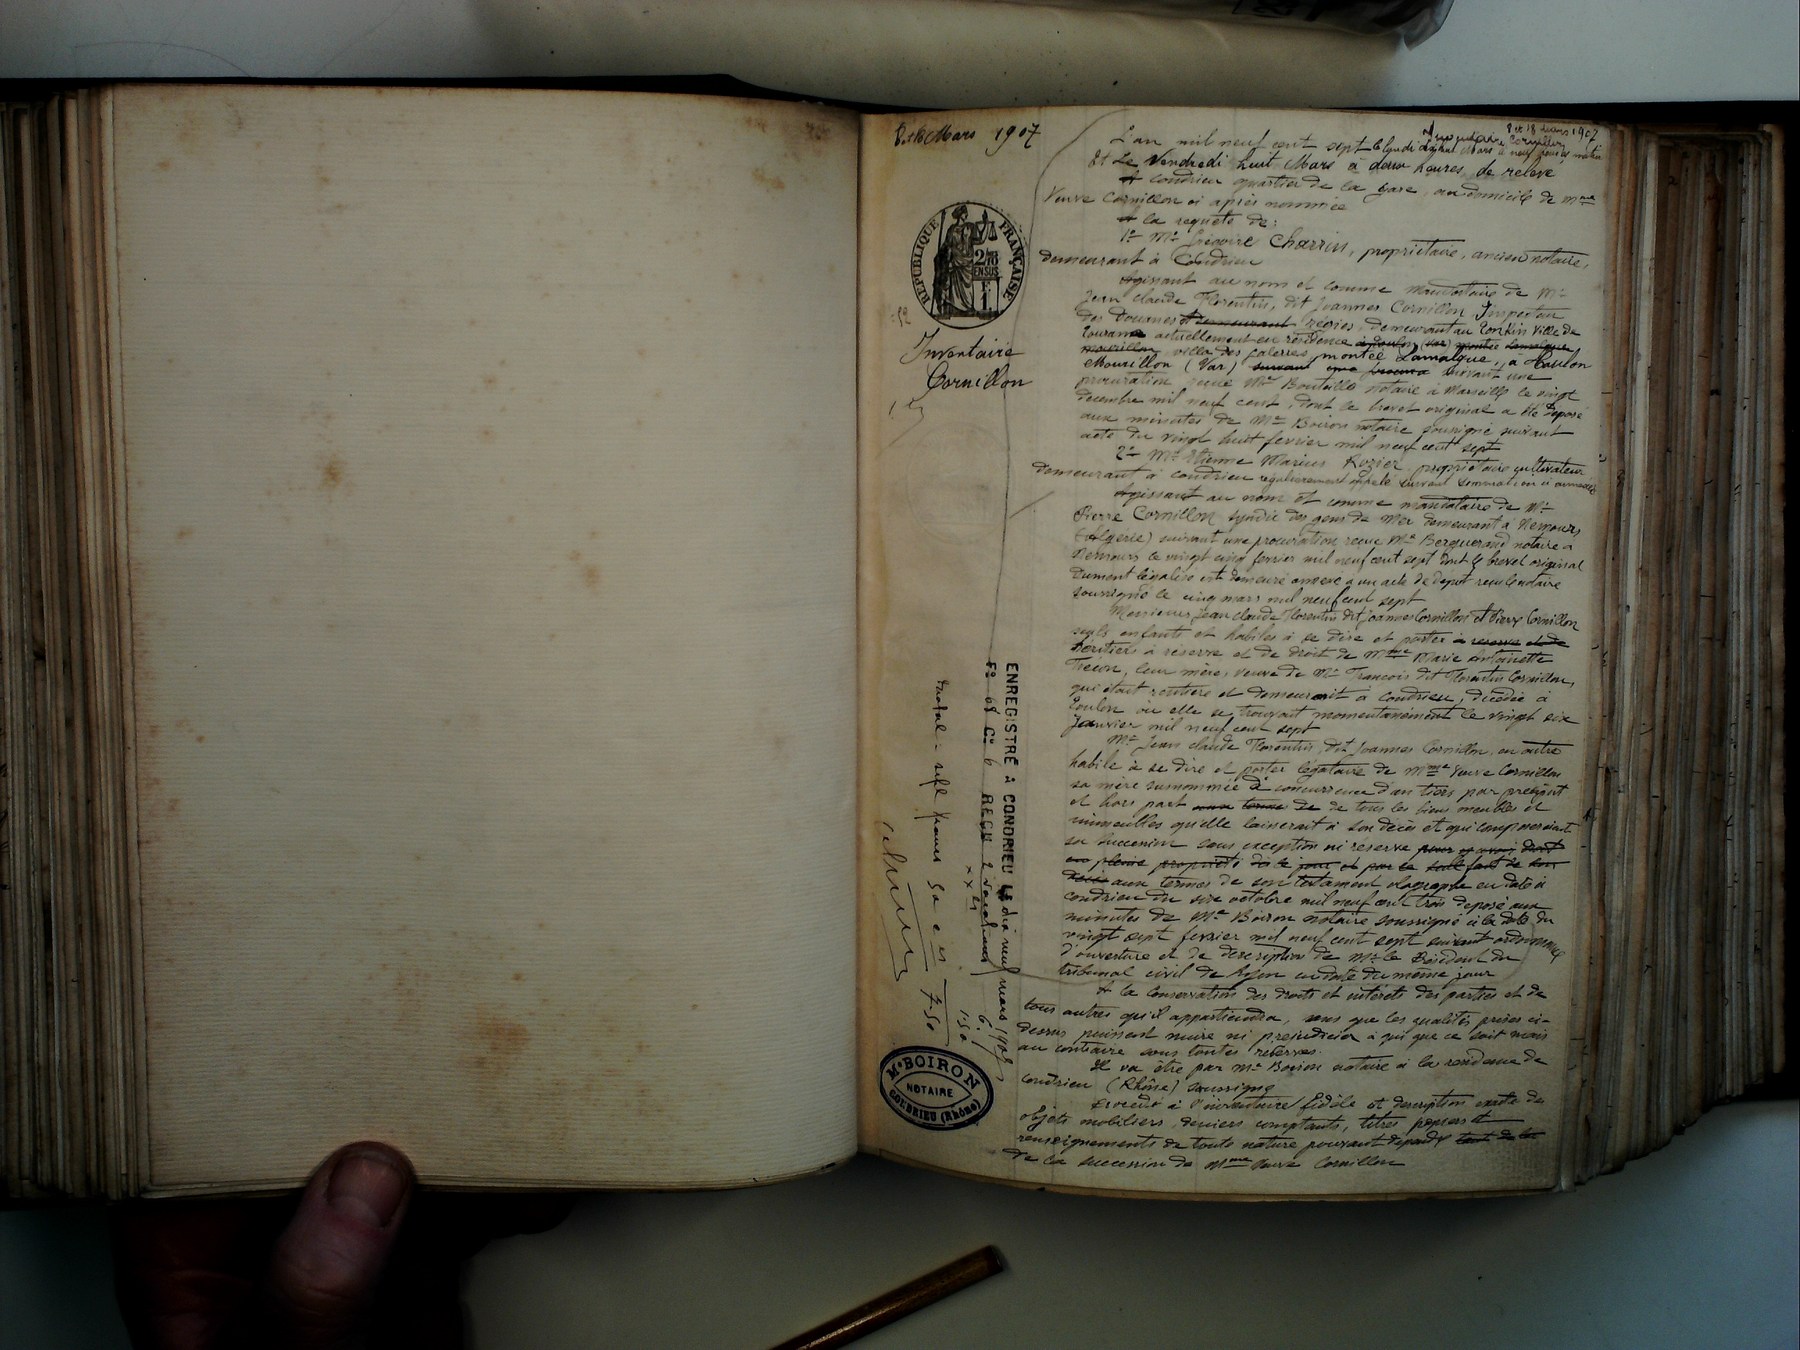 8 et 18 Mars 1907
Inventaire Cornillon
8 et 18 mars 1907
RÉPUBLIQUE FRANÇAISE
Inventaire
Cornillon
L'an mil neuf cent sept le lundi dix huit Mars à neuf heures matin
Et Le Vendredi huit Mars à deux heures de relevé
A Condrieu quartier de la Gare, au domicile de Mme
Veuve Cornillon ci après nommée
A la requête de :
1º Mr Grégoire Charrin, propriétaire, ancien notaire,
demeurant à Condrieu
Agissant au nom et comme mandataire de Mr
Jean Claude Florentin, dit Joannes Cornillon Inspecteur
des Douanes et demeurant régies, demeurant au Tonkin ville de
Tourane actuellement en résidence à Toulon (Var) montée Lamalgue
Mourillon, villa des Galeries, montée Lamalgue, à Toulon
Mourillon (Var) suivant une procura suivant une
procuration reçue Me Bouteille notaire à Marseille le vingt
décembre mil neuf cent, dont le brevet original a été déposé
aux minutes de Me Boiron notaire soussigné suivant
acte du vingt huit février mil neuf cent sept
2º Mr Etienne Marius Rozier propriétaire cultivateur
demeurant à Condrieu régulièrement appelé suivant sommation ci annexée
Agissant au nom et comme mandataire de Mr
Pierre Cornillon syndic des gens de Mer demeurant à Nemours
(Algérie) suivant une procuration reçue Me Berquerand notaire à
Nemours le vingt cinq février mil neuf cent sept dont le brevet original
dument légalisé est demeuré annexé à un acte de dépôt reçu le notaire
soussigné le cinq mars mil neuf cent sept
Messieurs Jean Claude Florentin dit Joannes Cornillon et Pierre Cornillon
seuls enfants et habiles à se dire et porter à réserve et de
héritiers à réserve et de droit de Mme Marie Antoinette
leur mère, veuve de Mr François dit Florentin Cornillon,
qui était rentière et demeurait à Condrieu, décédée à
Toulon où elle se trouvait momentanément le vingt six
Janvier mil neuf cent sept
Mr Jean Claude Florentin, dit Joannes Cornillon, en outre
habile à se dire et porter légataire de Mme Veuve Cornillon
sa mère susnommée à concurrence d'un tiers par préciput
et hors part aux termes de de tous les biens meubles et
immeubles qu'elle laisserait à son décès et qui composeraient
sa succession sans exception ni réserve pour y avoir droit
en pleine propriété dès le jour et par le seul fait de son
décès aux termes de son testament olographe en date à
Condrieu du six octobre mil neuf cent trois déposé aux
minutes de Me Boiron notaire soussigné à la date du
vingt sept février mil neuf cent sept suivant ordonnance
d'ouverture et de description de Mr le Président du
tribunal civil de Lyon en date du même jour
A la conservation des droits et intérêts des parties et de
tous autres qu'il appartiendra, sans que les qualités prises ci-
dessus puissent nuire ni préjudicier à qui que ce soit mais
au contraire sous toutes réserves.
Il va être par Me Boiron notaire à la résidence de
Condrieu (Rhône) soussigné
Procédé à l'inventaire fidèle et description exacte de
objets mobiliers, deniers comptants, titres, papiers et
renseignements de toute nature pouvant dépendre tant de la
de la succession de Mme Veuve Cornillon
ENREGISTRÉ A CONDRIEU LE dix neuf mars 1907
Fº 68 Cº 6 REÇU
6.
1.50
total : sept francs 50 c 7.50
Me BOIRON
NOTAIRE
CONDRIEU (Rhône)